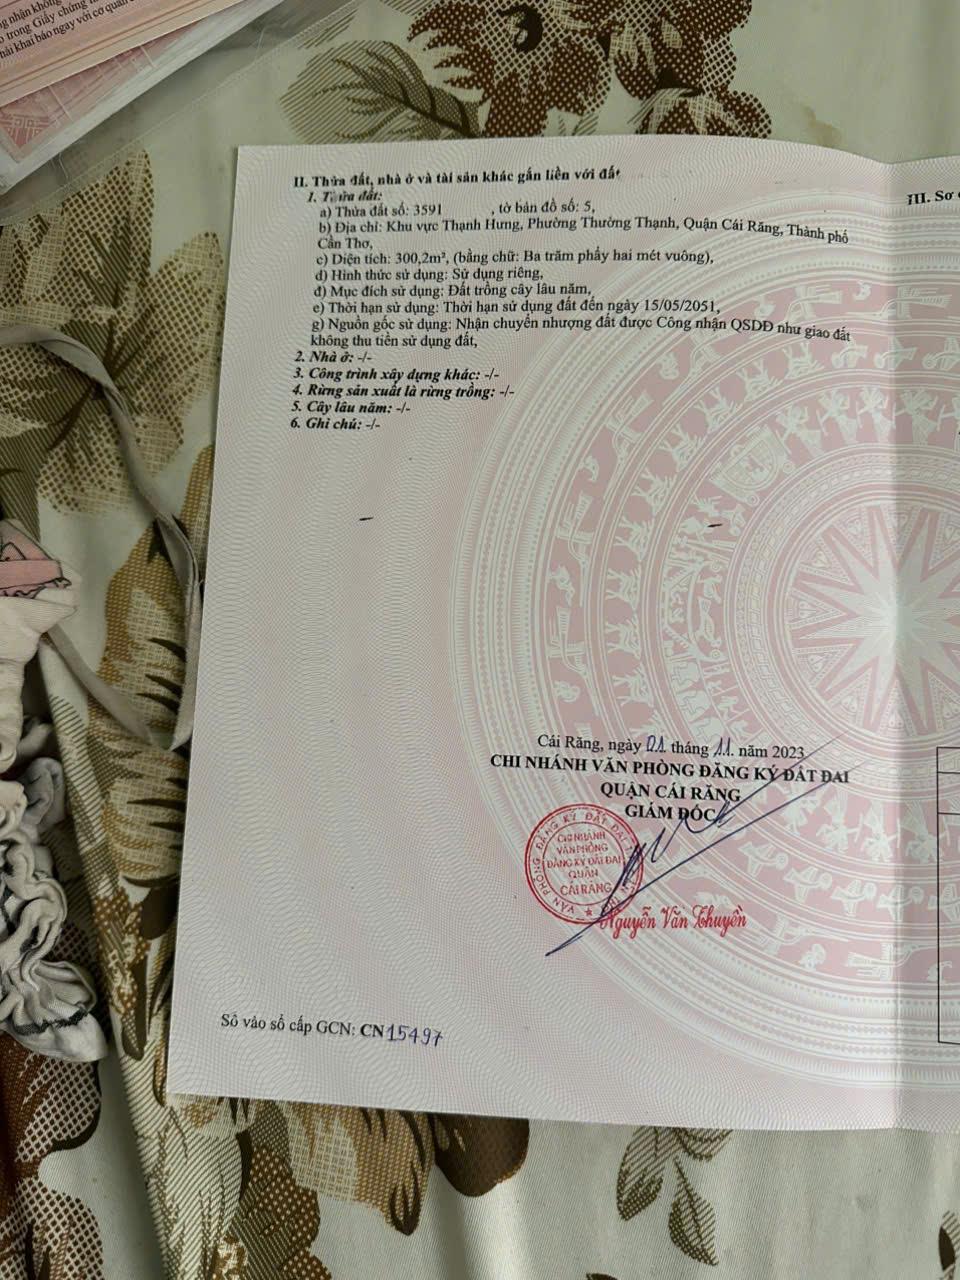 ng nhận không
o trong Giấy chứng n
hải khai báo ngay với cơ quan
II. Thửa đất, nhà ở và tài sản khác gắn liền với đất
1. Thửa đất:
a) Thửa đất số: 3591 , tờ bản đồ số: 5,
b) Địa chỉ: Khu vực Thạnh Hưng, Phường Thường Thạnh, Quận Cái Răng, Thành phố
Cần Thơ,
c) Diện tích: 300,2m², (bằng chữ: Ba trăm phẩy hai mét vuông),
d) Hình thức sử dụng: Sử dụng riêng,
đ) Mục đích sử dụng: Đất trồng cây lâu năm,
e) Thời hạn sử dụng: Thời hạn sử dụng đất đến ngày 15/05/2051,
g) Nguồn gốc sử dụng: Nhận chuyển nhượng đất được Công nhận QSDĐ như giao đất
không thu tiền sử dụng đất,
2. Nhà ở: -/-
3. Công trình xây dựng khác: -/-
4. Rừng sản xuất là rừng trồng: -/-
5. Cây lâu năm: -/-
6. Ghi chú: -/-
III. Sơ
Cái Răng, ngày 01 tháng 11 năm 2023
CHI NHÁNH VĂN PHÒNG ĐĂNG KÝ ĐẤT ĐAI
QUẬN CÁI RĂNG
GIÁM ĐỐC
VĂN PHÒNG ĐĂNG KÝ ĐẤT ĐAI
CHI NHÁNH
VĂN PHÒNG
ĐĂNG KÝ ĐẤT ĐAI
QUẬN
CÁI RĂNG
Nguyễn Văn Thuyền
Số vào sổ cấp GCN: CN15497